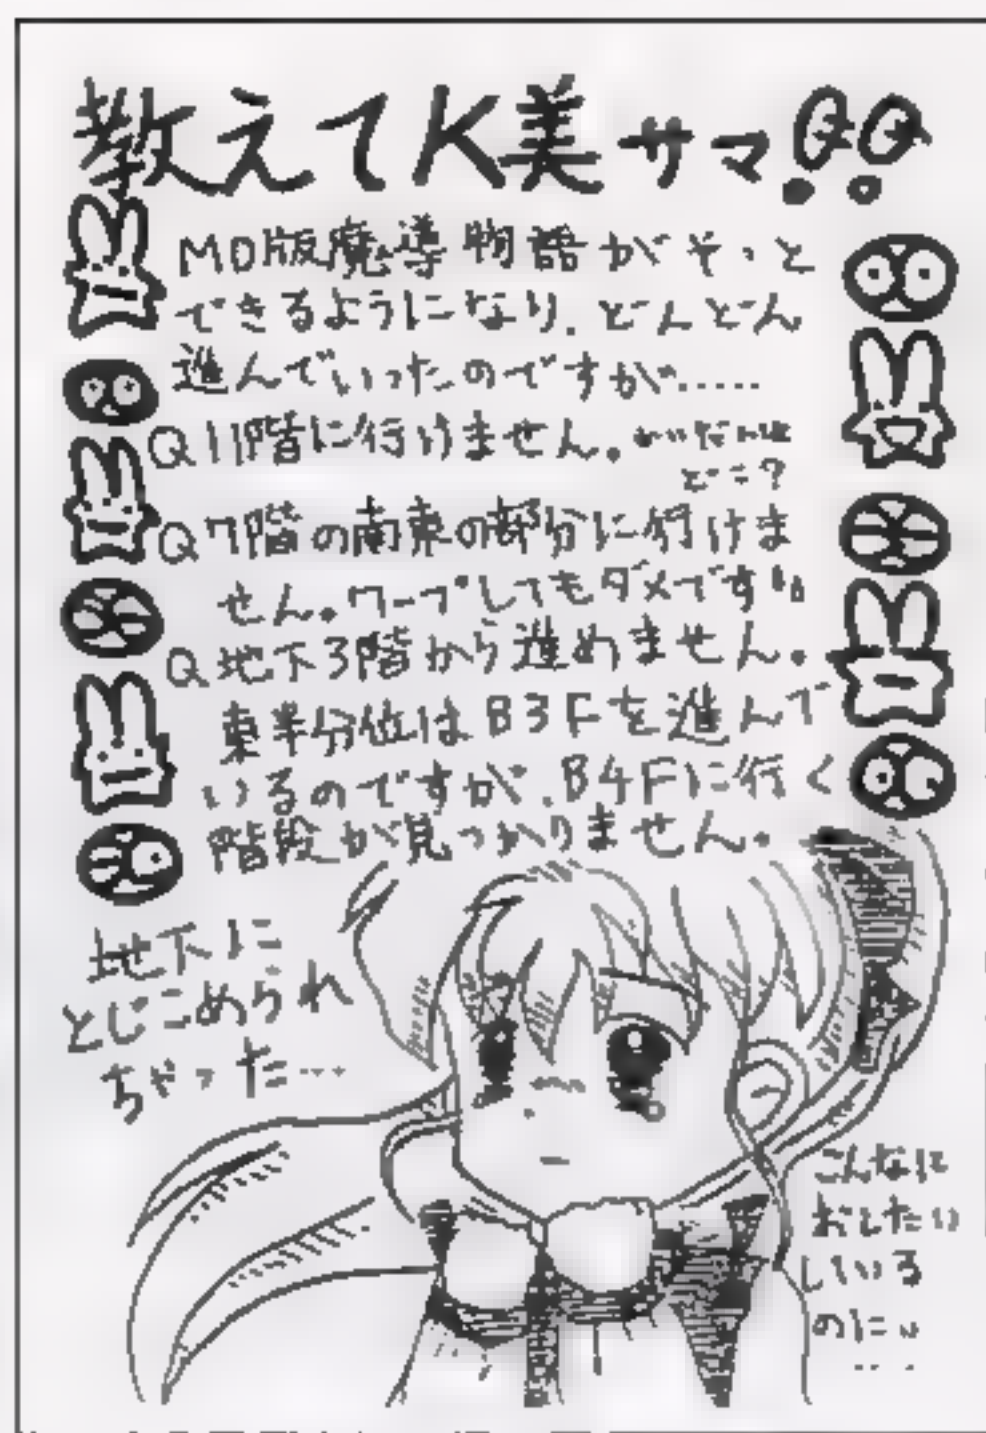 教えてK美サマ!!
MD版魔導物語がやっと
できるようになり、どんどん
進んでいったのですが……
Q 11階に行けません。かいだんは
どこ?
Q 7階の南東の部分に行けま
せん。ワープしてもダメです
Q 地下3階から進めません。
東半分位はB3Fを進んで
いるのですが、B4Fに行く
階段が見つかりません。
地下に
とじこめられ
ちゃった…
こんなに
おしたい
している
のに
…